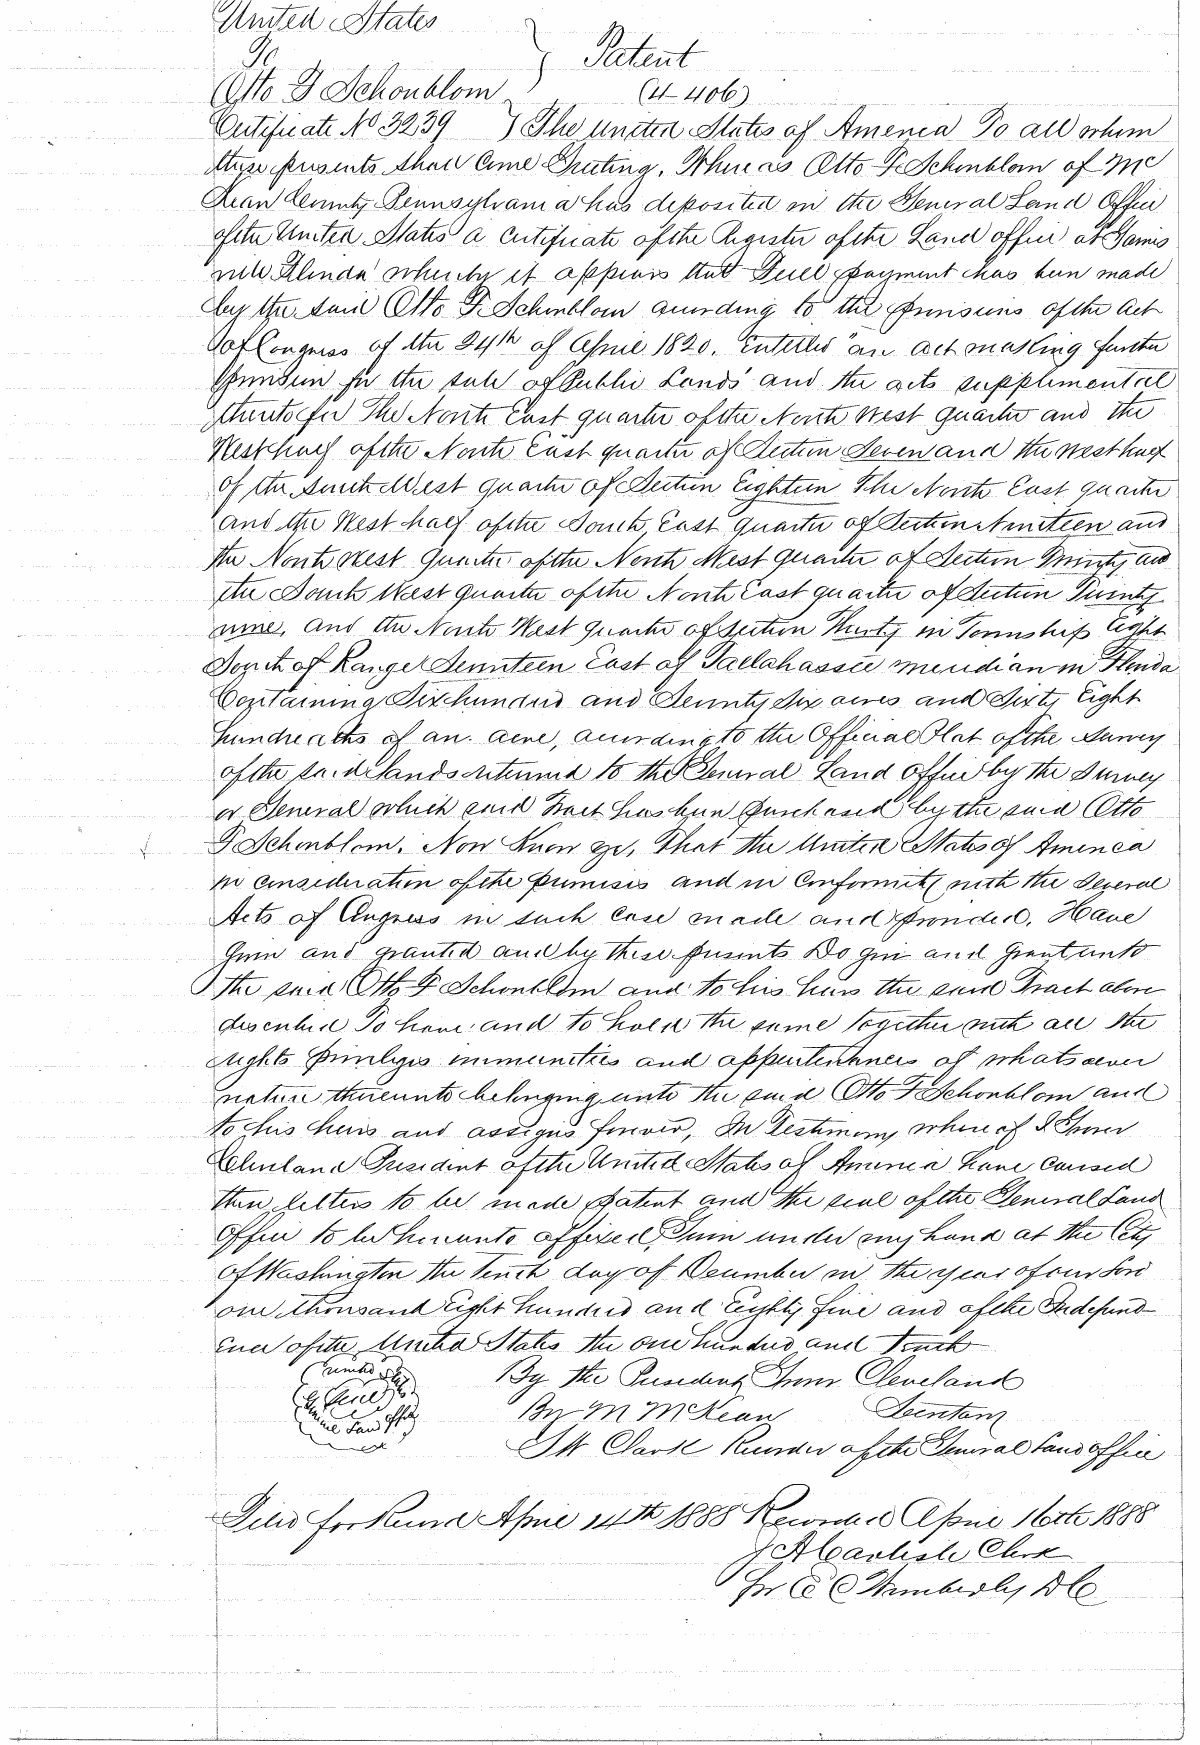 United States
To } Patent
Otto F Schonblom (4-406)
Certificate No 3239 } The United States of America To all whom
these presents shall Come Greeting, Whereas Otto F. Schonblom of Mc
Kean County Pennsylvania has deposited in the General Land Office
of the United States a Certificate of the Register of the Land office at Gaines
ville Florida whereby it appears that Full payment has been made
by the said Otto F. Schonblom according to the provisions of the Act
of Congress of the 24th of April 1820. Entitled "an act making further
provision for the sale of Public Lands" and the acts supplimental
thereto for The North East quarter of the North West quarter and the
West half of the North East quarter of Section Seven and the west half
of the South West quarter of Section Eighteen The North East quarter
and the West half of the South East quarter of Section Nineteen and
the North West Quarter of the North West quarter of Section Twenty and
the South West quarter of the North East quarter of Section Twenty
nine, and the North West Quarter of Section Thirty in Township Eight
South of Range Seventeen East of Tallahassee meridian in Florida
Containing Six hundred and Seventy Six acres and Sixty Eight
hundreaths of an. acre, according to the Official Plat of the Survey
of the said lands returned to the General Land office by the Survey
or General which said Tract has been purchased by the said Otto
F Schonblom. Now Know ye, That the United States of America
in consideration of the premises and in Conformity with the several
Acts of Congress in such Case made and provided, Have
given and granted and by these presents Do give and Grant unto
the said Otto F Schonblom and to his heirs the said Tract above
described To have and to hold the same together with all the
rights privileges immunities and appurtenances of whatsoever
nature thereunto belonging unto the said Otto F Schonblom and
to his heirs and assigns forever, In Testimony where of I Grover
Cleveland President of the United States of America have caused
these letters to be made patent and the seal of the General Land
Office to be hereunto affixed, Given under my hand at the City
of Washington the tenth day of December in the year of our Lord
one thousand Eight hundred and Eighty five and of the Independ
ence of the United States the one hundred and tenth
United States
Seal
General Land Office
By the President, Grover Cleveland
By M McKean Secretary
S W Clark Recorder of the General Land office
Filed for Record April 14th 1888 Recorded April 16th 1888
J A Carlisle Clerk
for C C Wimberly D C